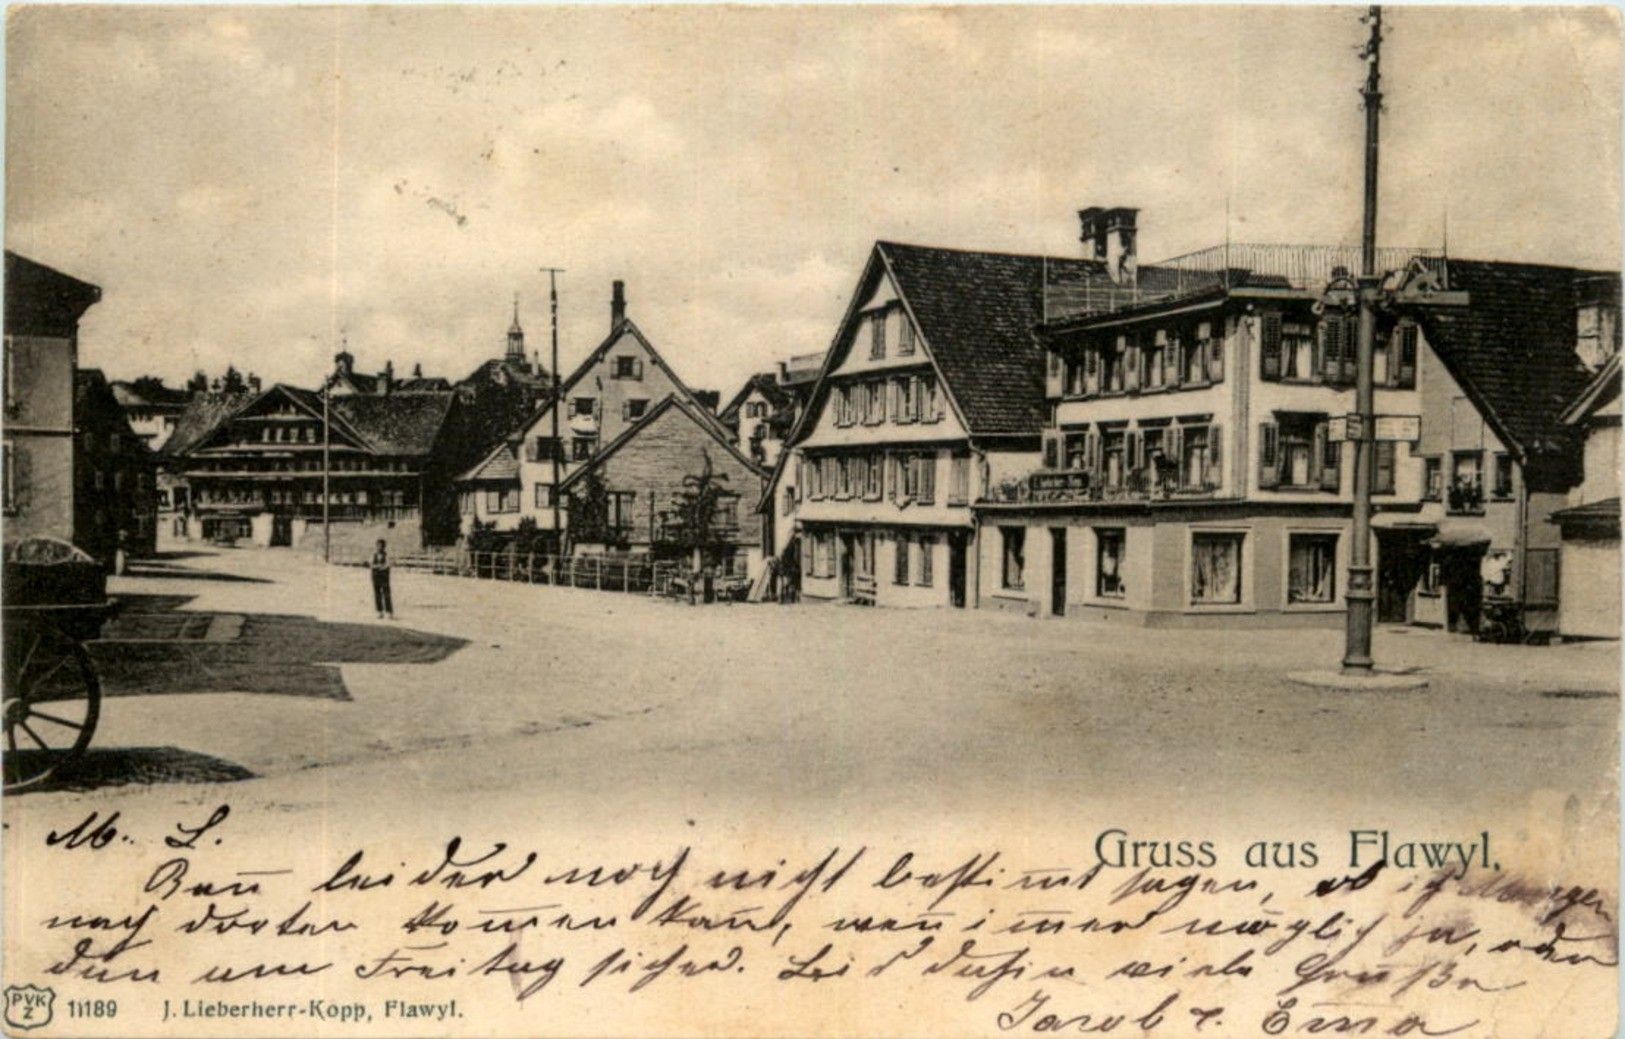 Gruss aus Flawyl.
M. L.
Kan̄ leider noch nicht bestim̄t sagen, ob ich Morgen
nach dorten kom̄en kan̄, wen̄ im̄er möglich ja, oder
dan am Freitag sicher. Bis dahin viele Grüße
Jacob & Em̄a
PVKZ 11189 J. Lieberherr-Kopp, Flawyl.